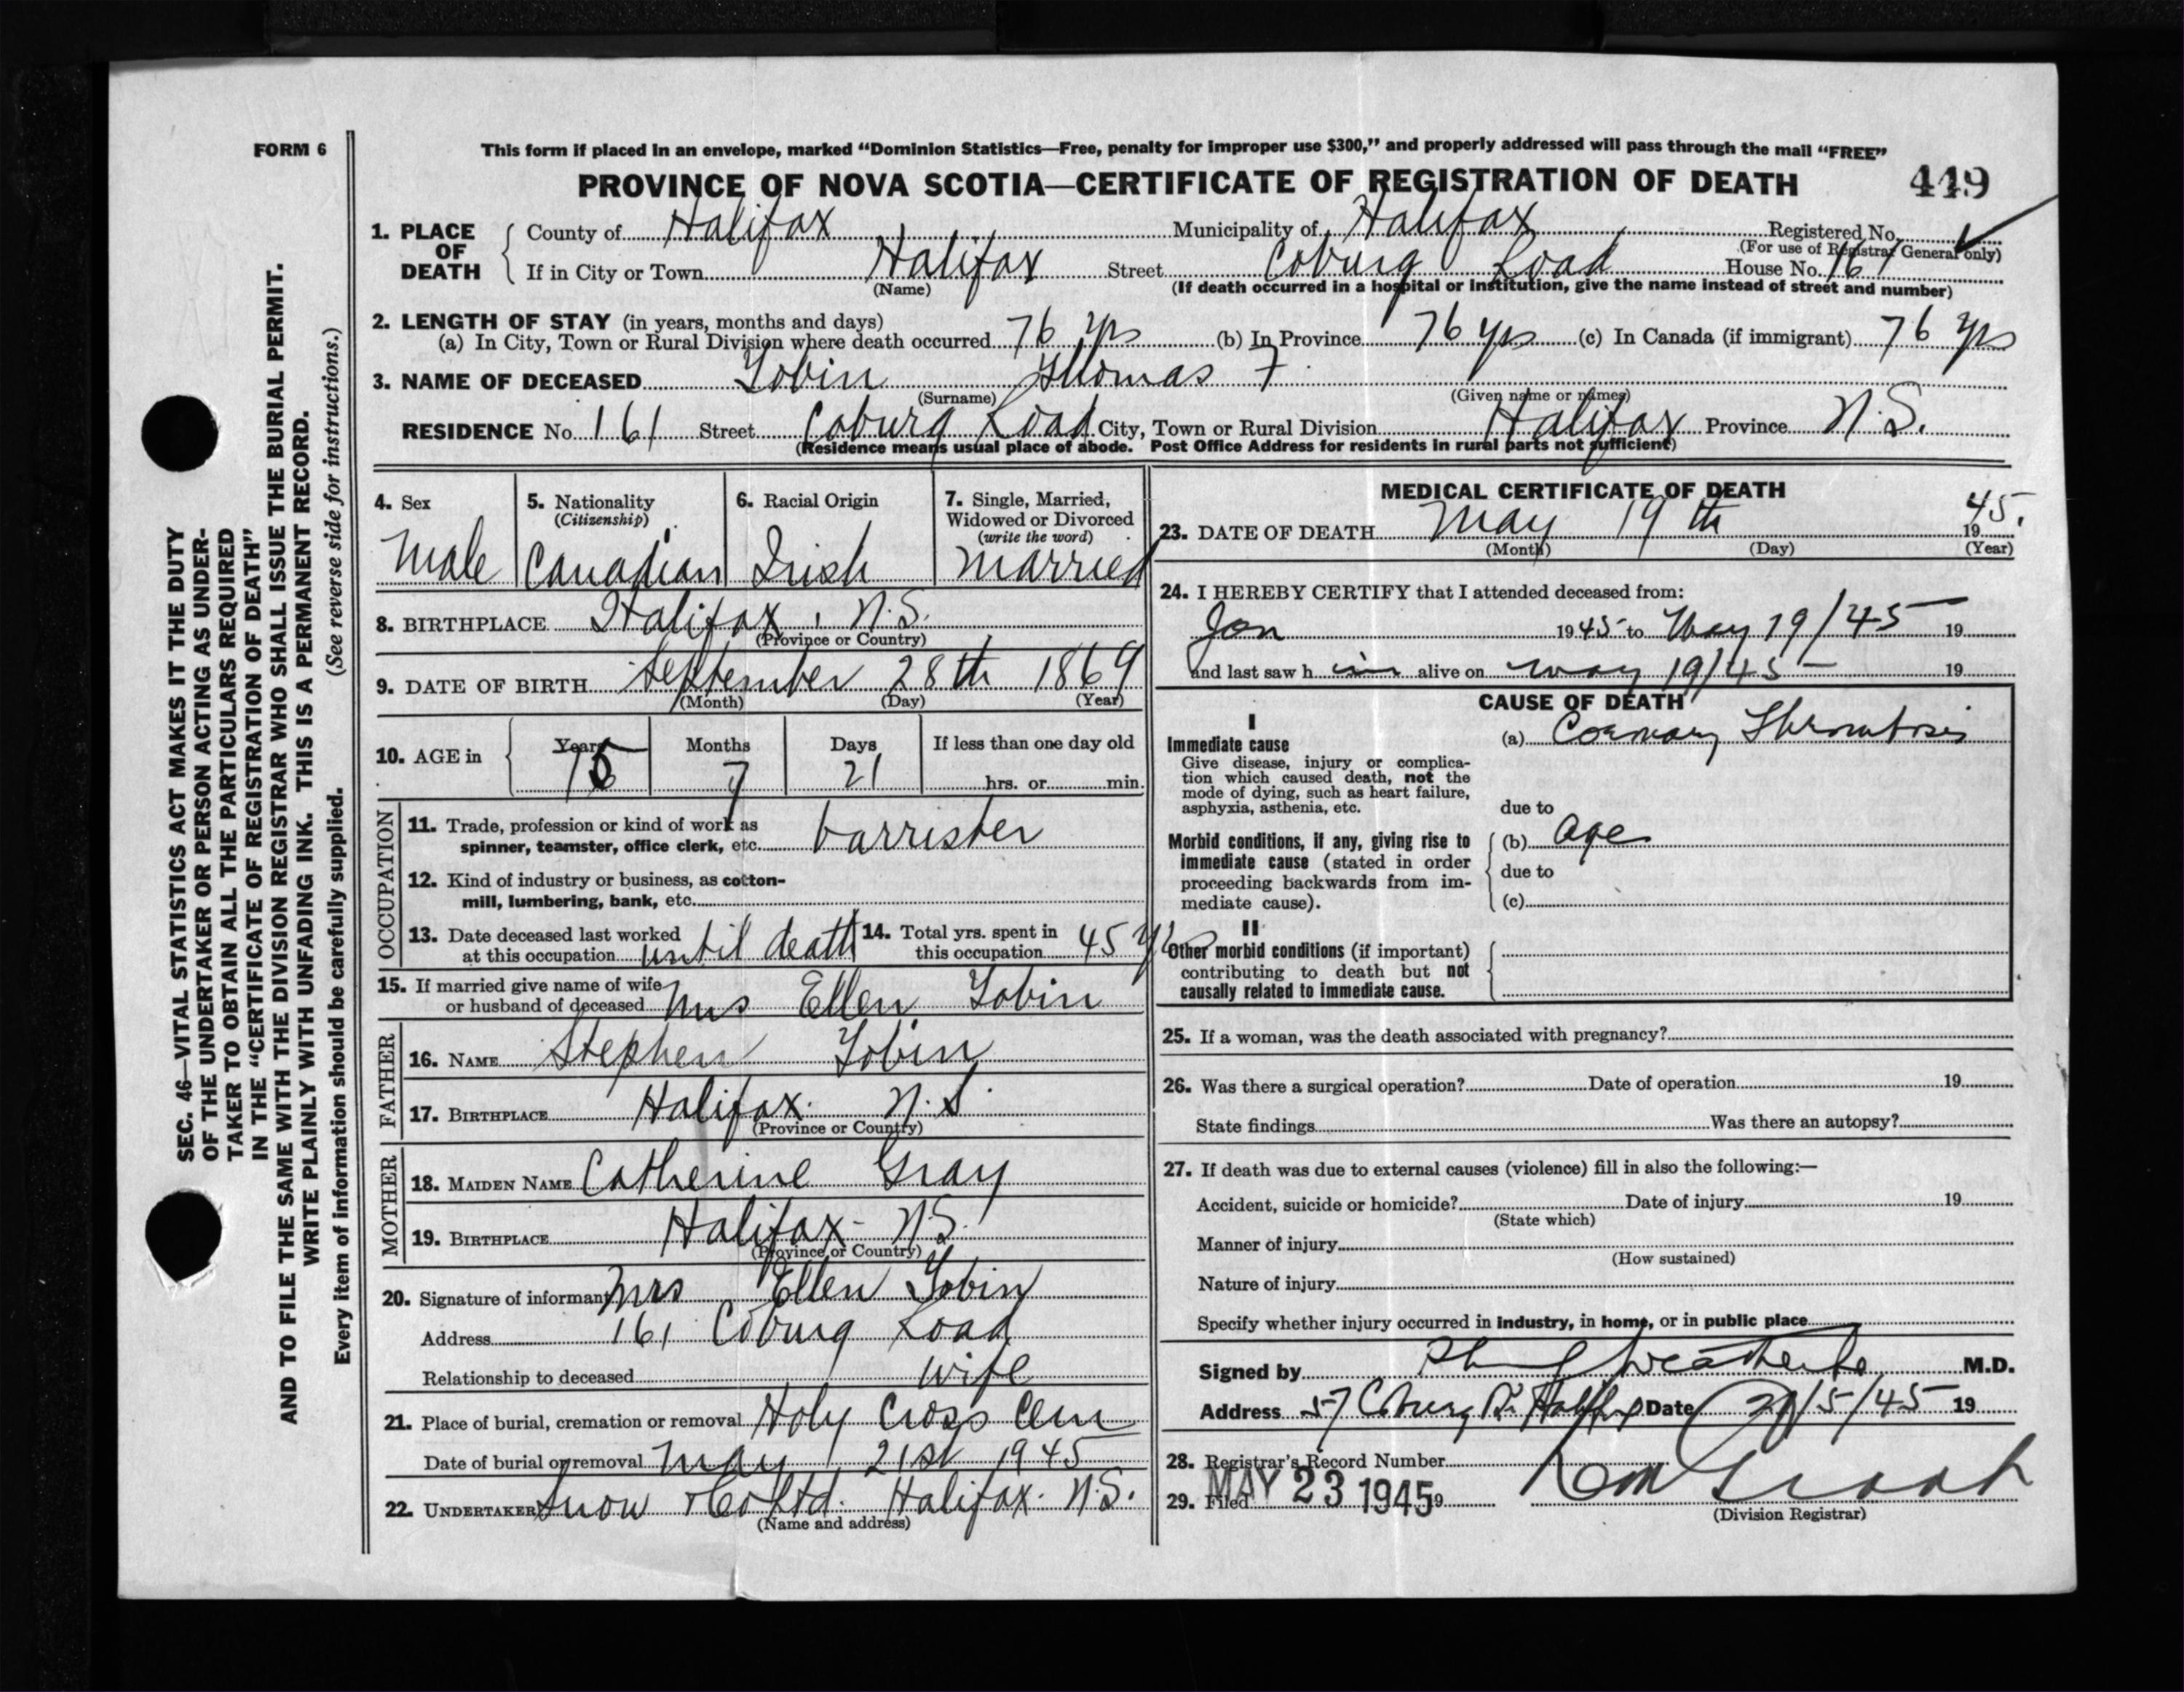 FORM 6
This form if placed in an envelope, marked “Dominion Statistics—Free, penalty for improper use $300,” and properly addressed will pass through the mail “FREE”
PROVINCE OF NOVA SCOTIA—CERTIFICATE OF REGISTRATION OF DEATH 449
SEC. 46—VITAL STATISTICS ACT MAKES IT THE DUTY
OF THE UNDERTAKER OR PERSON ACTING AS UNDER-
TAKER TO OBTAIN ALL THE PARTICULARS REQUIRED
IN THE “CERTIFICATE OF REGISTRATION OF DEATH”
AND TO FILE THE SAME WITH THE DIVISION REGISTRAR WHO SHALL ISSUE THE BURIAL PERMIT.
WRITE PLAINLY WITH UNFADING INK. THIS IS A PERMANENT RECORD.
Every item of information should be carefully supplied. (See reverse side for instructions.)
1. PLACE OF DEATH
County of Halifax Municipality of Halifax Registered No.
(For use of Registrar General only)
If in City or Town Halifax Street Coburg Road House No. 161
(Name) (If death occurred in a hospital or institution, give the name instead of street and number)
2. LENGTH OF STAY (in years, months and days)
(a) In City, Town or Rural Division where death occurred 76 yrs (b) In Province 76 yrs (c) In Canada (if immigrant) 76 yrs
3. NAME OF DECEASED Tobin Thomas F.
(Surname) (Given name or names)
RESIDENCE No. 161 Street Coburg Road City, Town or Rural Division Halifax Province N.S.
(Residence means usual place of abode. Post Office Address for residents in rural parts not sufficient)
4. Sex
Male
5. Nationality
(Citizenship)
Canadian
6. Racial Origin
Irish
7. Single, Married,
Widowed or Divorced
(write the word)
Married
8. BIRTHPLACE Halifax, N.S.
(Province or Country)
9. DATE OF BIRTH September 28th 1869
(Month) (Day) (Year)
10. AGE in
Years Months Days If less than one day old
7 21 hrs. or min.
OCCUPATION
11. Trade, profession or kind of work as
spinner, teamster, office clerk, etc. barrister
12. Kind of industry or business, as cotton-
mill, lumbering, bank, etc.
13. Date deceased last worked
at this occupation until death
14. Total yrs. spent in
this occupation 45 yrs
15. If married give name of wife
or husband of deceased Mrs Ellen Tobin
FATHER
16. NAME Stephen Tobin
17. BIRTHPLACE Halifax. N.S.
(Province or Country)
MOTHER
18. MAIDEN NAME Catherine Gray
19. BIRTHPLACE Halifax - N.S.
(Province or Country)
20. Signature of informant Mrs Ellen Tobin
Address 161 Coburg Road
Relationship to deceased wife
21. Place of burial, cremation or removal Holy Cross Cem
Date of burial or removal May 21st 1945
22. UNDERTAKER Snow & Co Ltd. Halifax. N.S.
(Name and address)
MEDICAL CERTIFICATE OF DEATH
23. DATE OF DEATH May 19th 1945.
(Month) (Day) (Year)
24. I HEREBY CERTIFY that I attended deceased from:
Jan 1945 to May 19/45 19
and last saw him alive on May 19/45 19
CAUSE OF DEATH
I
Immediate cause
Give disease, injury or complica-
tion which caused death, not the
mode of dying, such as heart failure,
asphyxia, asthenia, etc.
(a) Coronary Thrombosis
due to
Morbid conditions, if any, giving rise to
immediate cause (stated in order
proceeding backwards from im-
mediate cause).
(b) Age
due to
(c)
II
Other morbid conditions (if important)
contributing to death but not
causally related to immediate cause.
25. If a woman, was the death associated with pregnancy?
26. Was there a surgical operation? Date of operation 19
State findings Was there an autopsy?
27. If death was due to external causes (violence) fill in also the following:—
Accident, suicide or homicide? Date of injury 19
(State which)
Manner of injury
(How sustained)
Nature of injury
Specify whether injury occurred in industry, in home, or in public place
Signed by M.D.
Address 57 Coburg Rd Halifax Date 20/5/45 19
28. Registrar's Record Number
29. Filed MAY 23 1945 19
(Division Registrar)